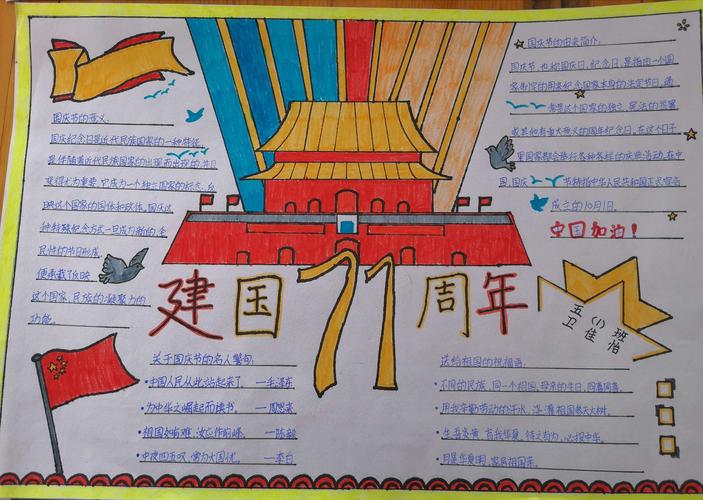 国庆节的意义:
国庆纪念日是近代民族国家的一种特征,
是伴随着近代民族国家的出现而出现的,并且
变得尤为重要。它成为一个独立国家的标志,反
映这个国家的国体和政体。国庆这
种特殊纪念方式一旦成为新的、全
民性的节日形式,
便承载了反映
这个国家、民族的凝聚力的
功能。
国庆节的由来简介:
国庆节也称国庆日、纪念日,是指由一个国
家制定的用来纪念国家本身的法定节日,通
常是这个国家的独立、宪法的签署
或其他有重大意义的周年纪念日。在这个日子
里国家都会举行各种各样的庆典活动。在中
国,国庆节特指中华人民共和国正式宣告
成立的10月1日。
中国加油!
建国71周年
五(1)班
卫佳怡
关于国庆节的名人警句:
•中国人民从此站起来了。 —毛泽东
•为中华之崛起而读书。 —周恩来
•祖国如有难,汝应作前峰。 —陈毅
•中夜四五叹,常为大国忧。 —李白
送给祖国的祝福语:
•不同的民族,同一个祖国,母亲的生日,同喜同喜。
•用我辛勤劳动的汗水,浇灌祖国参天大树。
•生吾炎黄,育我华夏,待之有为,必报中华。
•月是华夏明,家是祖国亲。